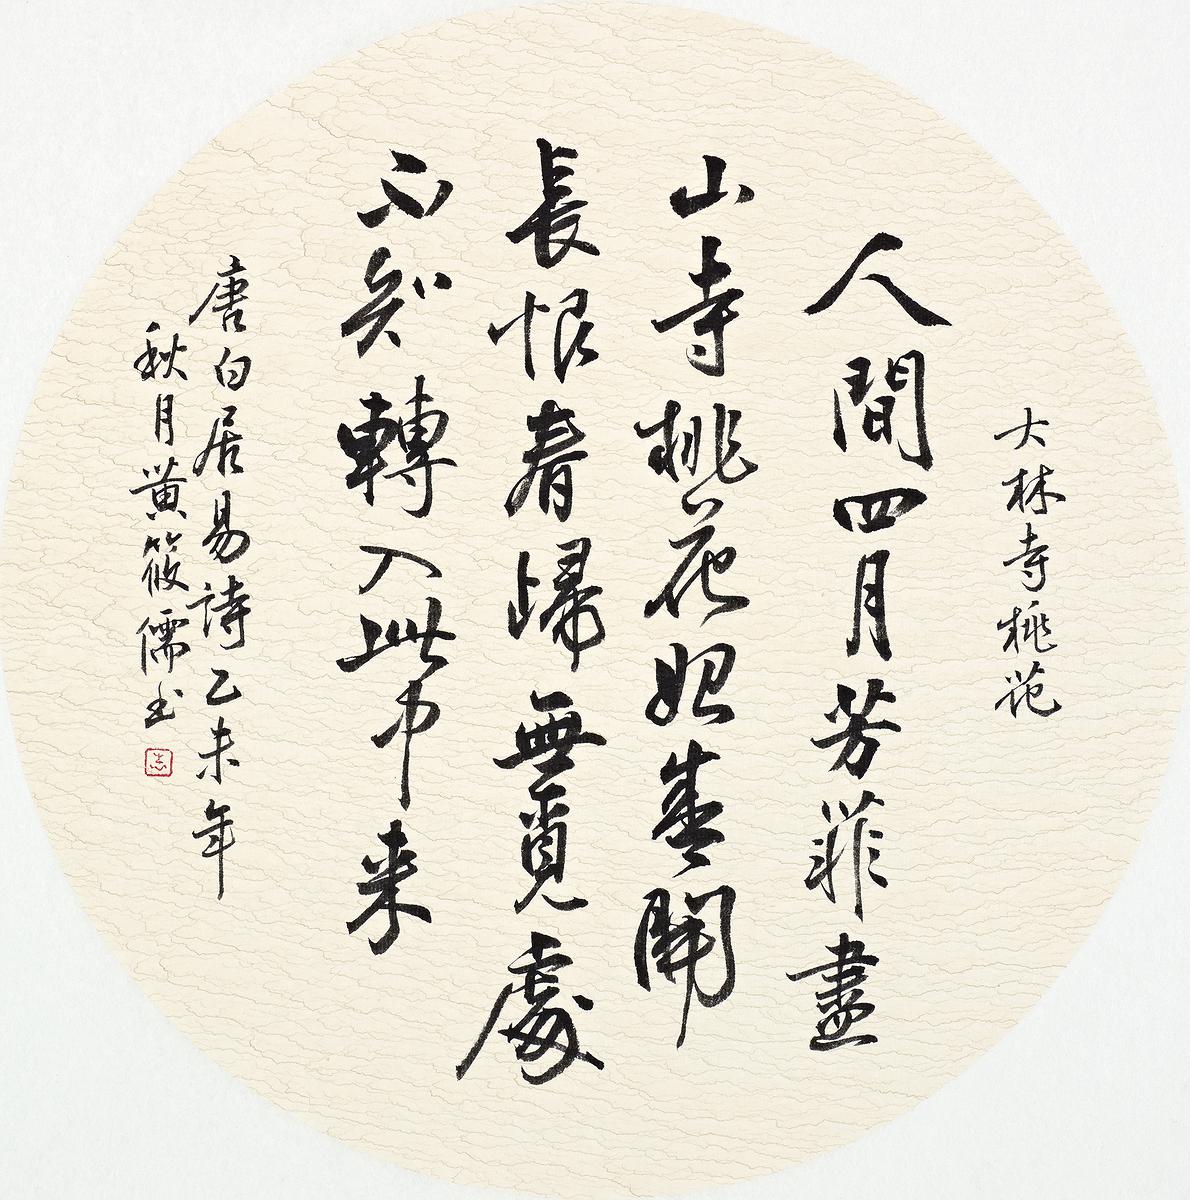 大林寺桃花
人間四月芳菲盡
山寺桃花始盛開
長恨春歸無覓處
不知轉入此中来
唐白居易詩乙未年
秋月黄筱儒书